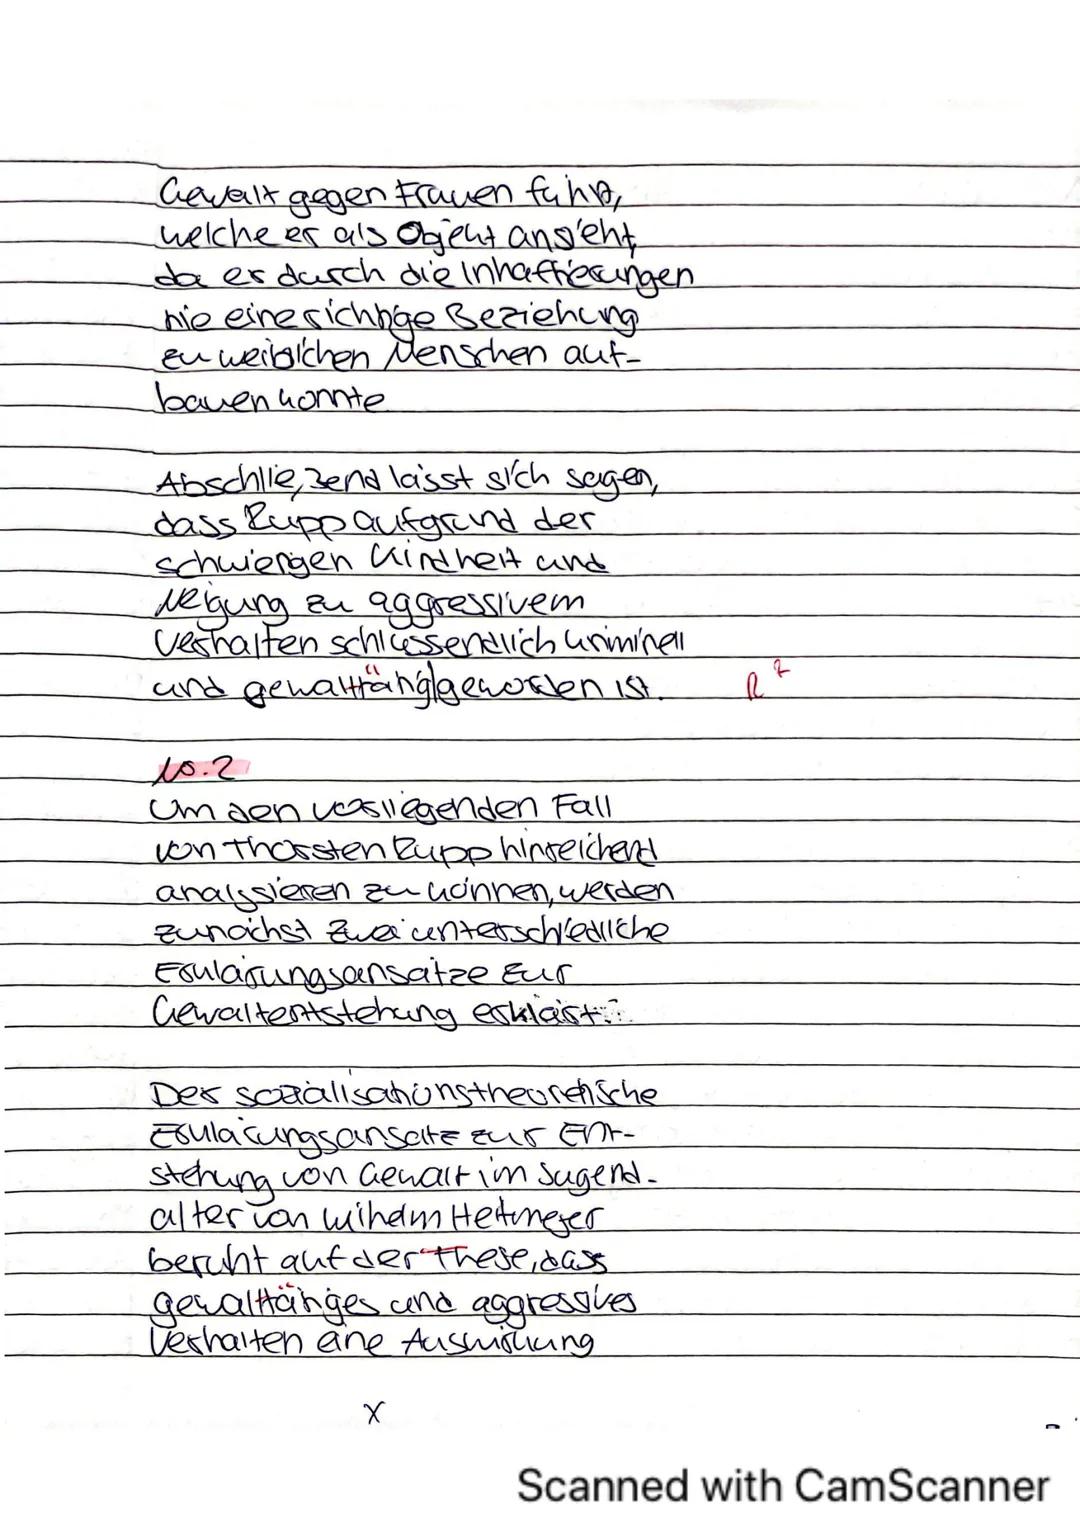 Gewalt gegen Frauen führt,
welche er als Objekt ansieht,
da er durch die Inhaftierungen
nie eine richtige Beziehung
zu weiblichen Menschen auf-
bauen konnte
Abschließend lässt sich sagen,
dass Rupp aufgrund der
schwierigen Kindheit und
Neigung zu aggressivem
Verhalten schlussendlich kriminell
und gewalttätig geworden ist.
R²
No.2
Um den vorliegenden Fall
von Thorsten Rupp hinreichend
analysieren zu können, werden
zunächst zwei unterschiedliche
Erklärungsansätze zur
Gewaltentstehung erklärt.
Der sozialisationstheoretische
Erklärungsansatz zur Ent-
stehung von Gewalt im Jugend-
alter von Wilhelm Heitmeyer
beruht auf der These, dass
gewalttätiges und aggressives
Verhalten eine Auswirkung
X
Scanned with CamScanner